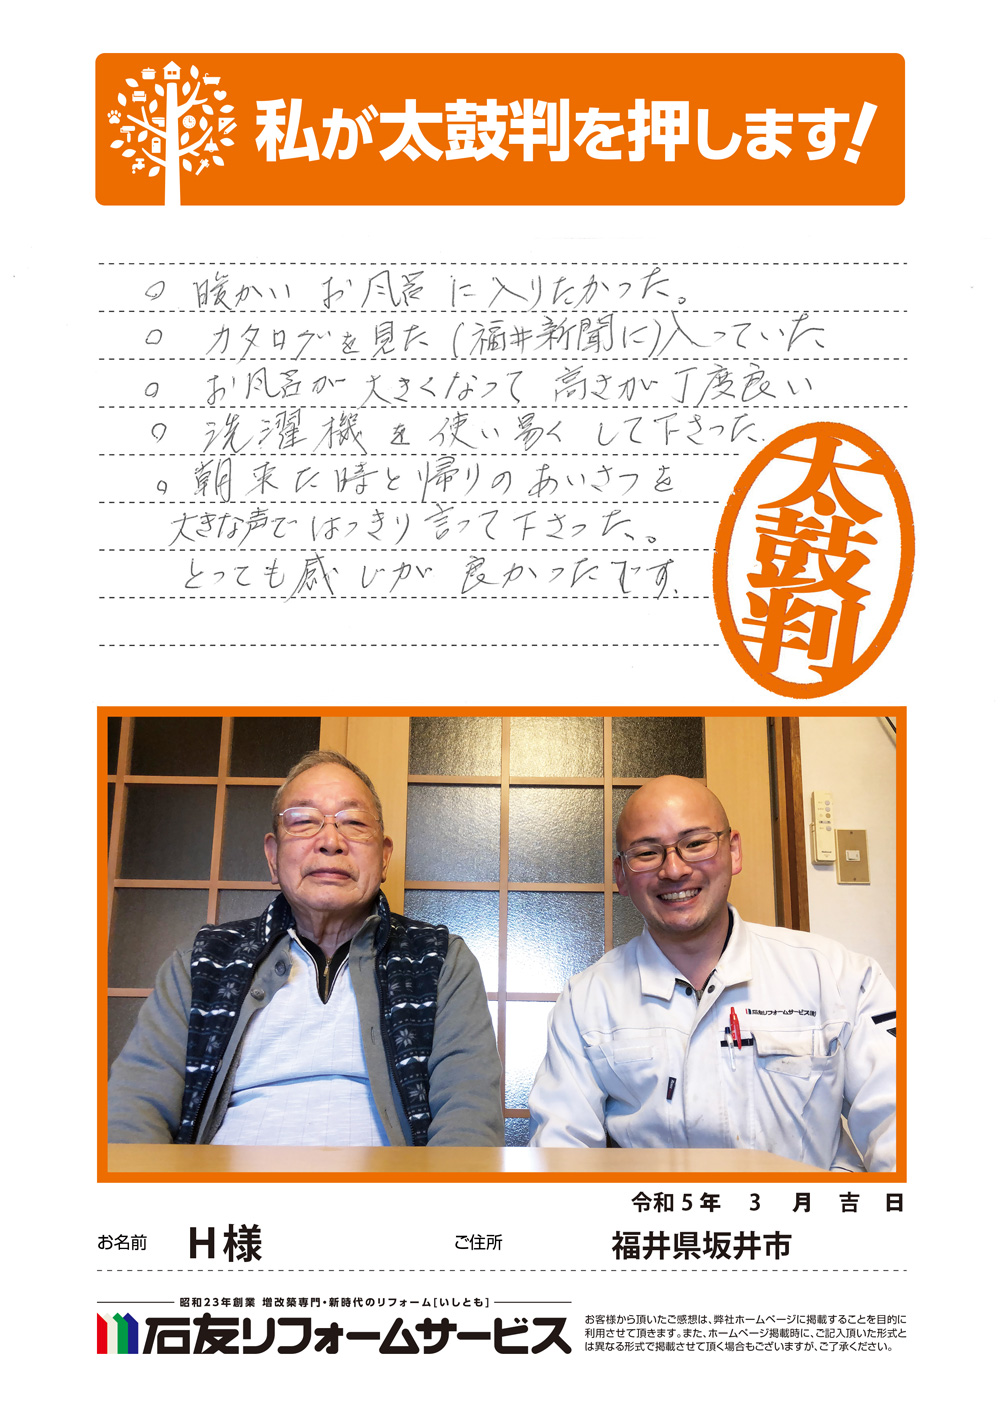 私が太鼓判を押します!
○ 暖かい お風呂 に入りたかった。
○ カタログを見た(福井新聞に)入っていた
○ お風呂が 大きくなって 高さが丁度良い
○ 洗濯機を使い易く して下さった.
○ 朝来た時と帰りのあいさつを
大きな声で はっきり言って下さった、。
とっても感じが 良かったです.
太鼓判
石友リフォームサービス(株)
令和5年 3 月 吉 日
お名前 H様 ご住所 福井県坂井市
昭和23年創業 増改築専門・新時代のリフォーム[いしとも]
石友リフォームサービス
お客様から頂いたご感想は、弊社ホームページに掲載することを目的に
利用させて頂きます。また、ホームページ掲載時に、ご記入頂いた形式と
は異なる形式で掲載させて頂く場合もございますが、ご了承ください。